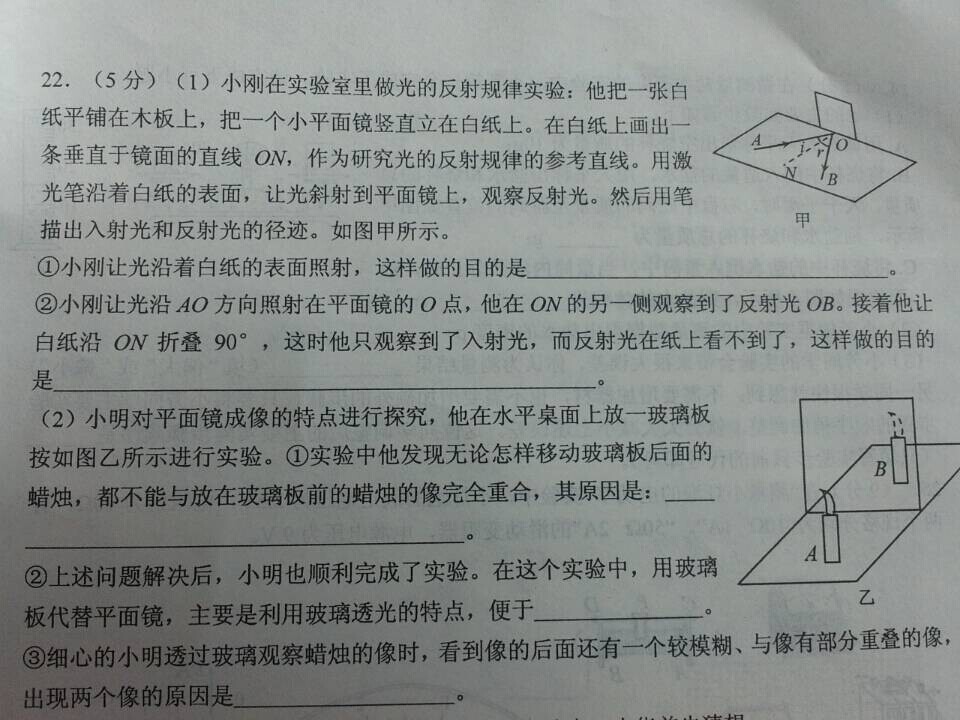 22．（5分）（1）小刚在实验室里做光的反射规律实验：他把一张白
纸平铺在木板上，把一个小平面镜竖直立在白纸上。在白纸上画出一
条垂直于镜面的直线 ON，作为研究光的反射规律的参考直线。用激
光笔沿着白纸的表面，让光斜射到平面镜上，观察反射光。然后用笔
描出入射光和反射光的径迹。如图甲所示。
A
i
r
O
N
B
甲
①小刚让光沿着白纸的表面照射，这样做的目的是____________________。
②小刚让光沿 AO 方向照射在平面镜的 O 点，他在 ON 的另一侧观察到了反射光 OB。接着他让
白纸沿 ON 折叠 90°，这时他只观察到了入射光，而反射光在纸上看不到了，这样做的目的
是______________________________。
（2）小明对平面镜成像的特点进行探究，他在水平桌面上放一玻璃板
按如图乙所示进行实验。①实验中他发现无论怎样移动玻璃板后面的
蜡烛，都不能与放在玻璃板前的蜡烛的像完全重合，其原因是：_____
______________________________。
②上述问题解决后，小明也顺利完成了实验。在这个实验中，用玻璃
板代替平面镜，主要是利用玻璃透光的特点，便于____________。
B
A
乙
③细心的小明透过玻璃观察蜡烛的像时，看到像的后面还有一个较模糊、与像有部分重叠的像，
出现两个像的原因是________________。